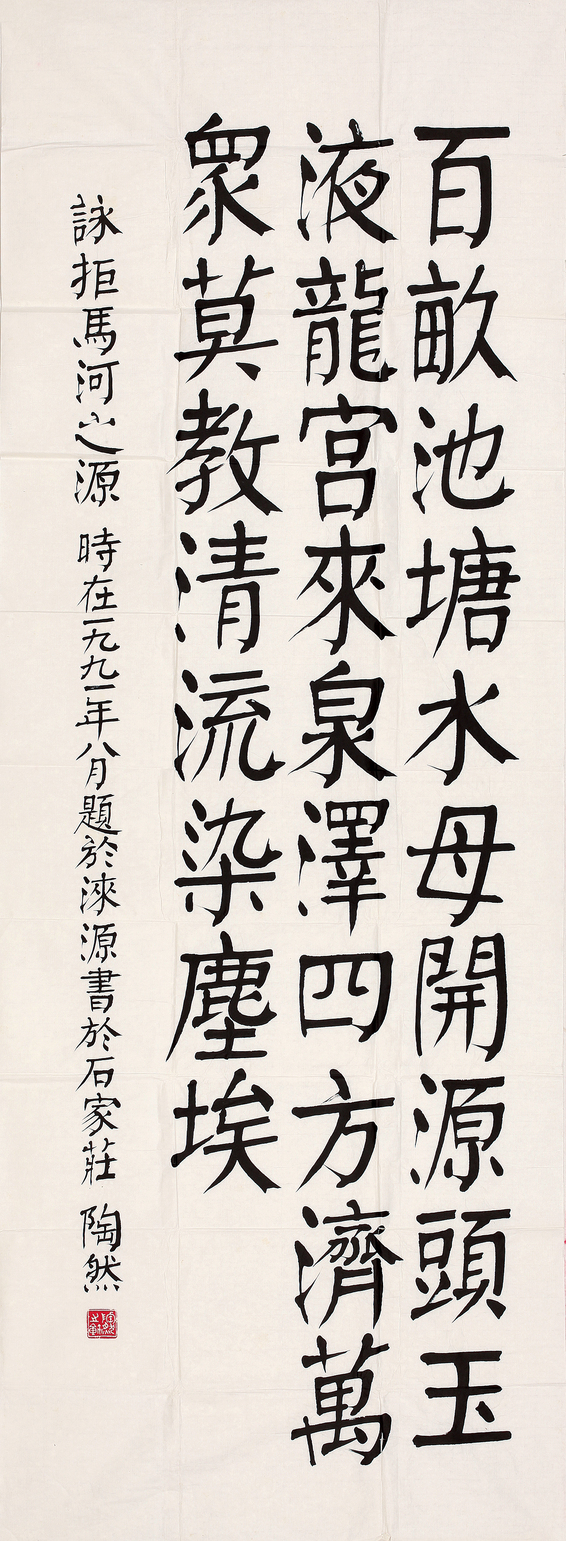 百畝池塘水母開源頭玉
液龍宮來泉澤四方濟萬
眾莫教清流染塵埃
詠拒馬河之源 時在一九九一年八月題於淶源書於石家莊 陶然